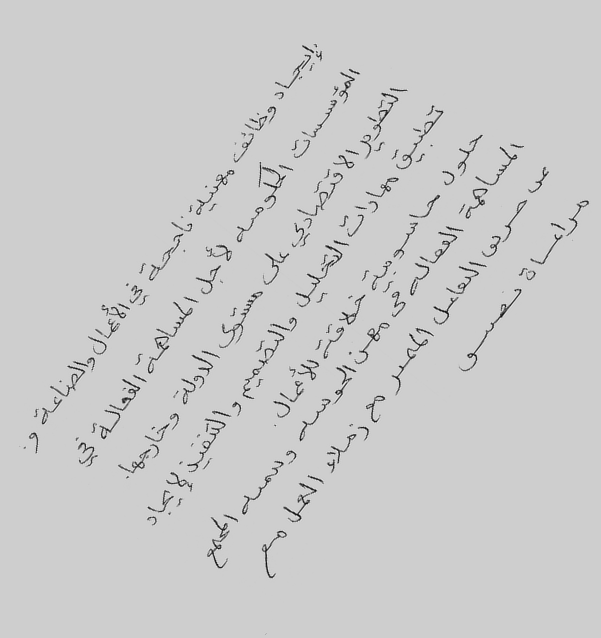 إيجاد وظائف مهنية ناجحة في الأعمال والصناعة و
المؤسسات الحكومية لأجل المساهمة الفعالة في
التطوير الاقتصادي على مستوى الدولة وخارجها.
تطبيق مهارات التحليل والتصميم والتنفيذ لإيجاد
حلول حاسوبية خلاقة للأعمال.
المساهمة الفعالة في مهن الحوسبة وتنمية المجتمع
عن طريق التفاعل المثمر مع زملاء العمل مع
مراعاة